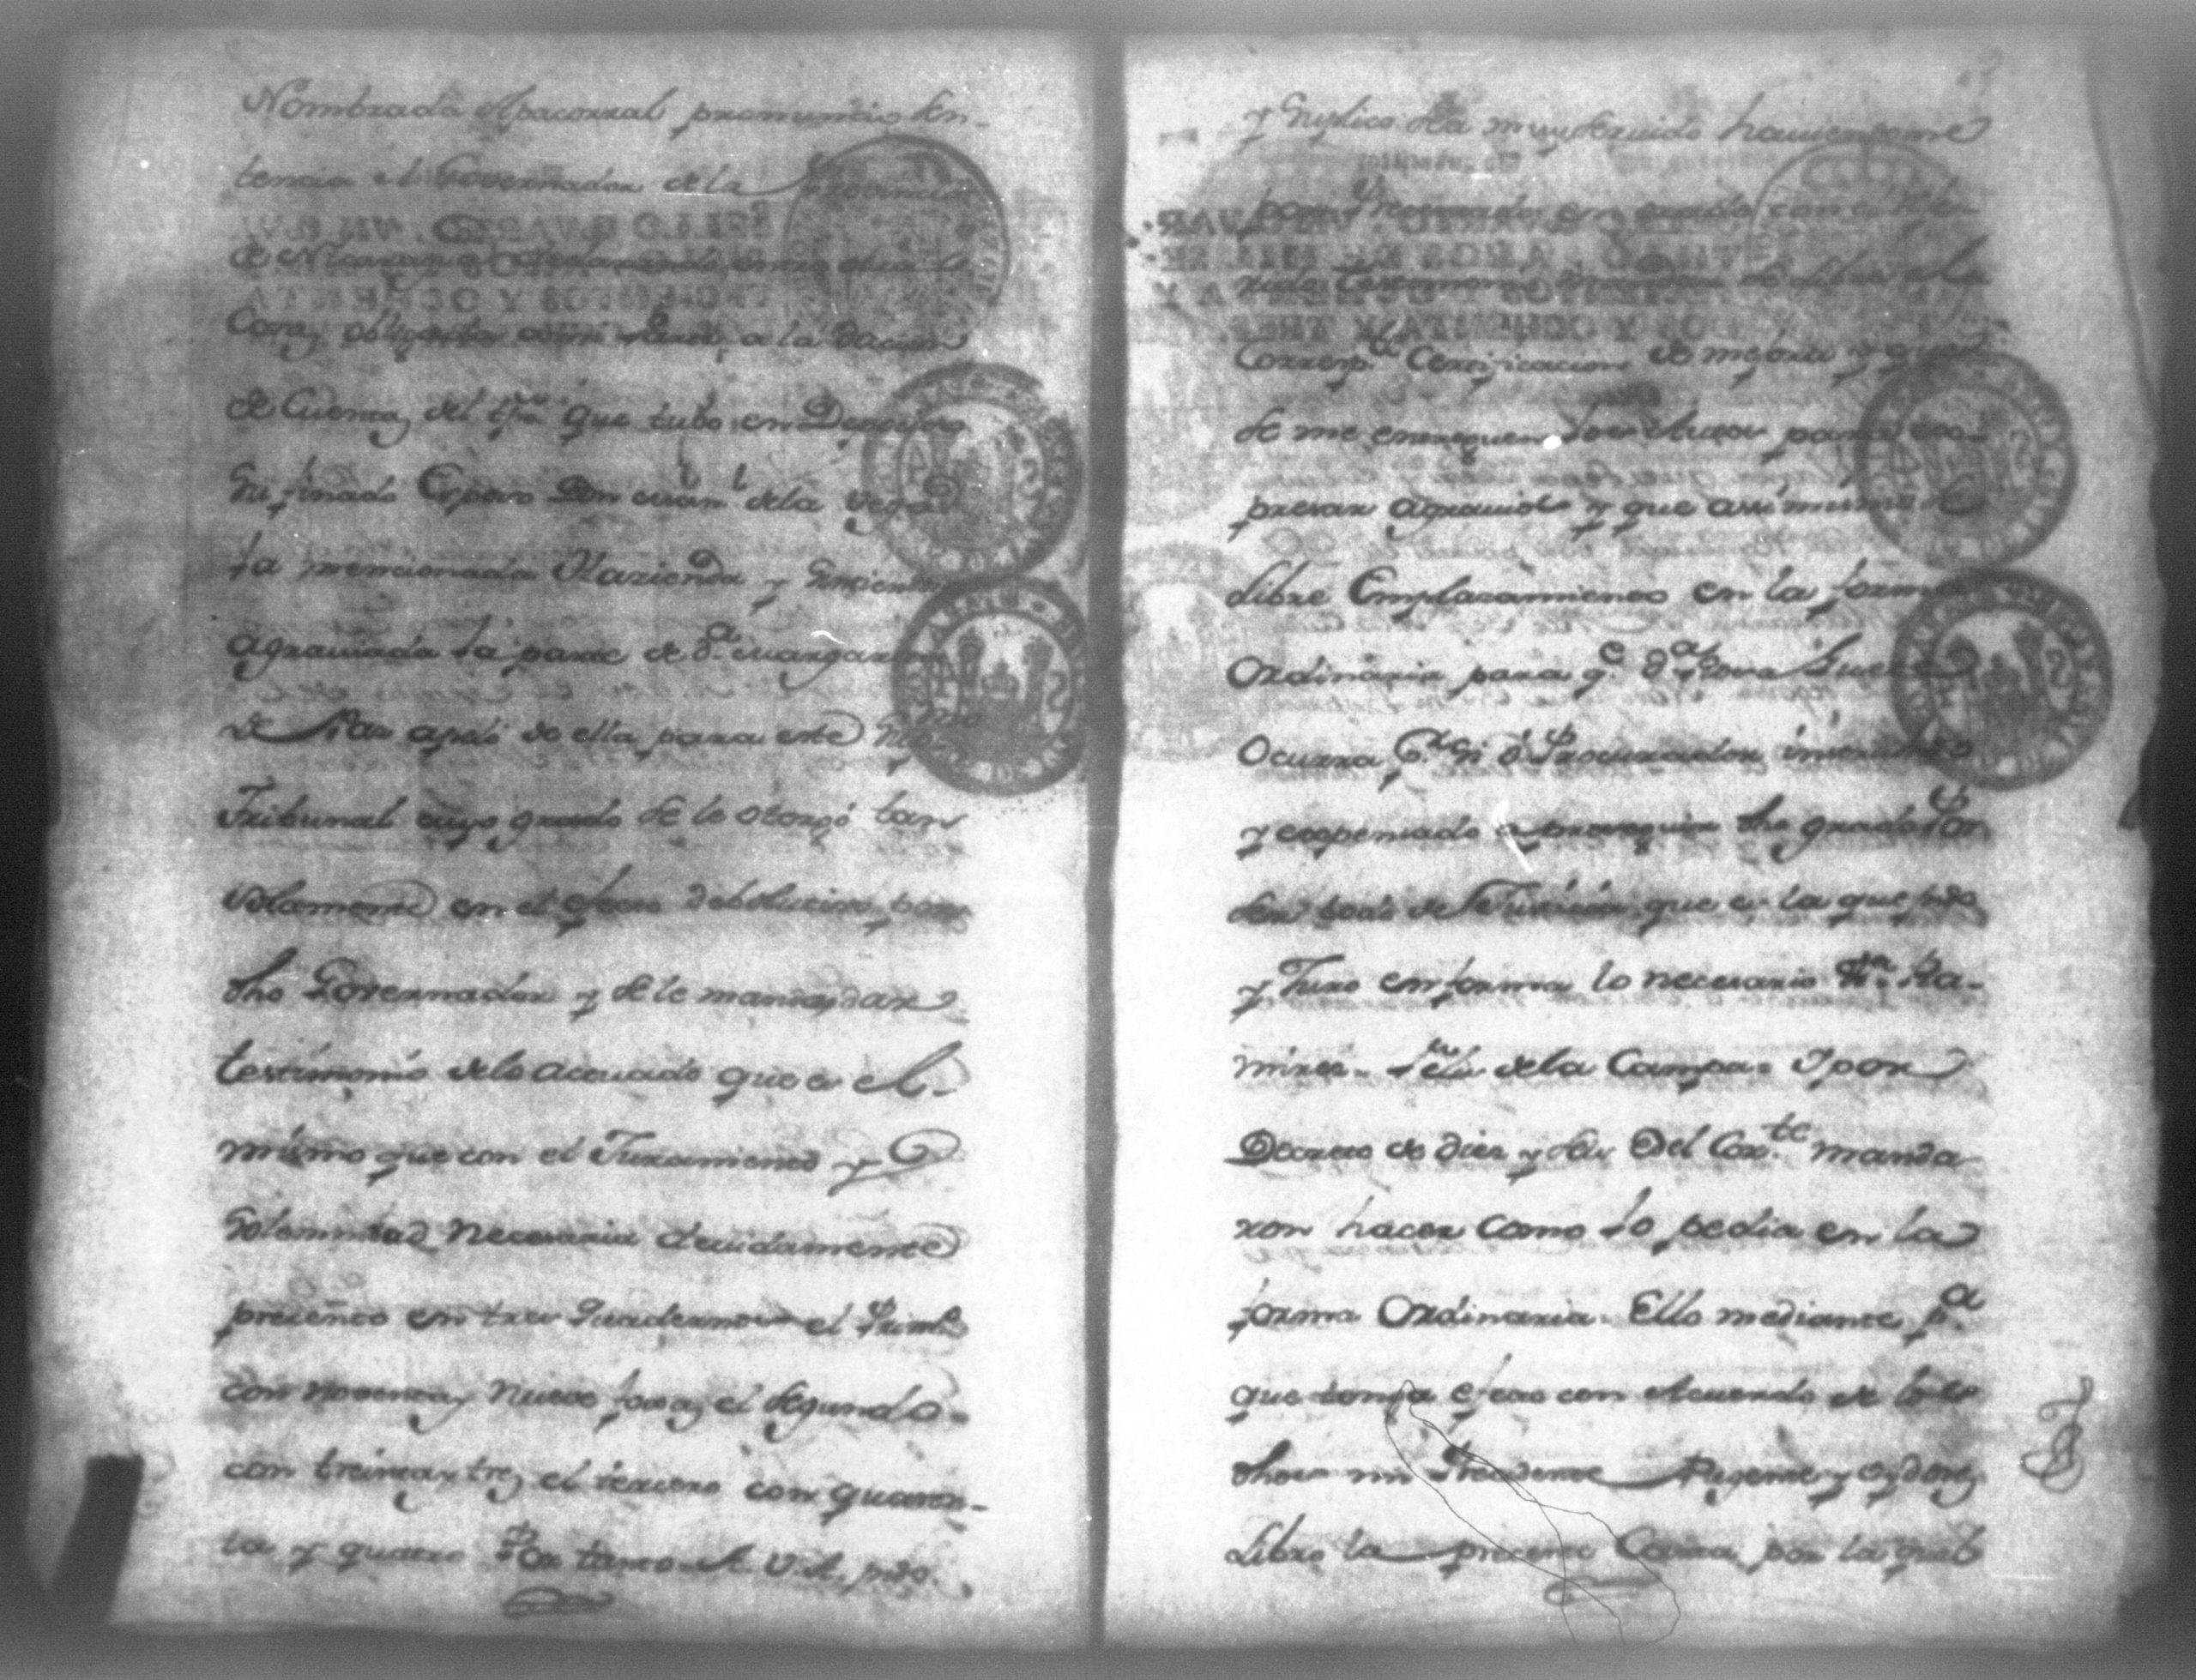 Nombrada Apacorral pronunció Sen-
tencia el Governador de la Provincia
de Nicaragua declarando entre otras
Cosas obligada como a la dacion
de Cuentas del tpo. que tubo en Deposito
Su finado Esposo Don Man.l de la Vega
la mencionada Hazienda y Sintiendose
agraviada la parte de d.a Margarita
de Paz apeló de ella para este Supmo
Tribunal cuyo grado se le otorgó tan
Solamente en el efecto debolutivo por
dho Governador y se le mandó dar
testimonio de lo actuado que es el-
mismo que con el Juramento y
Solemnidad Necesaria devidamente
precento en tres Quadernos el Primo
con noventa y Nueve foxas el Segundo-
con treinta y tres el tercero con quaren-
ta y quatro Por tanto A. V. A. pido.
y Suplico Sea muy Servido haviendome
por Presentado en grado con el
nido testimonio mandar se libre la
Corresp.te Certificacion de mejora y que
se me entreguen los Autos para ex-
presar agravios y que assi mismo se
Libre Emplazamiento en la forma
Ordinaria para q.e d.a Rosa
Ocurra P.r Si ó Procurador instruido
y expensado a proseguir dho grado Por
Ser todo de Justicia que es la que pido
y Juro en forma lo necesario &.a Ra-
mirez- de la Campa= Y por
Decreto de diez y Seis del Cor.te manda
ron hacer como lo pedia en la
forma Ordinaria. Ello mediante p.a
que tenga efecto con Acuerdo de los
dhos mi Precidente Regente y oydores
Libro la precente Carta por la qual